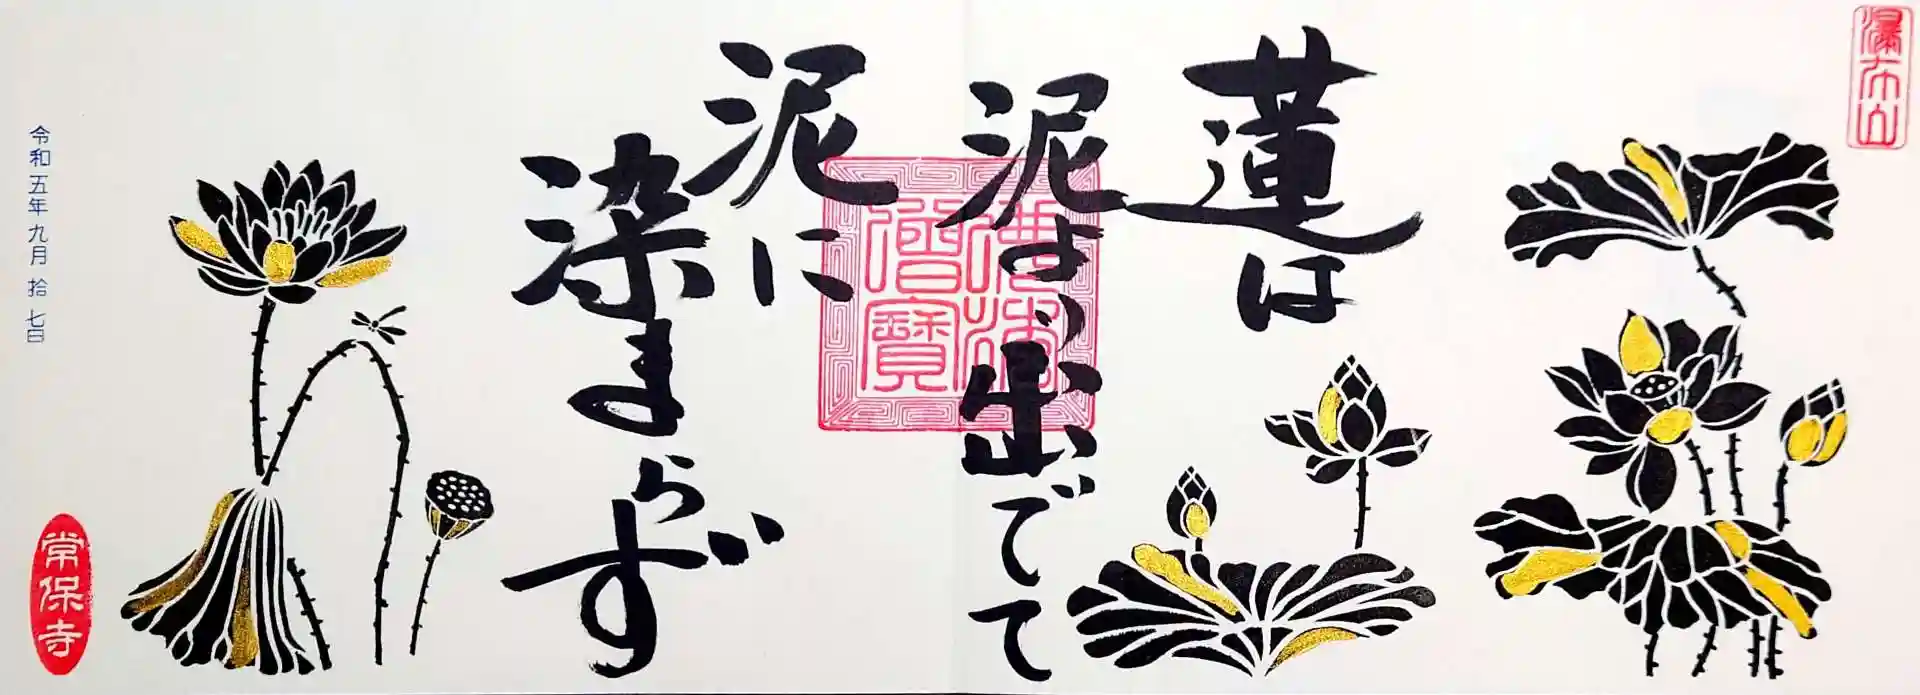 瀑布山
蓮は
泥より出でて
泥に
染まらず
佛法
僧寶
令和五年九月拾七日
常保寺